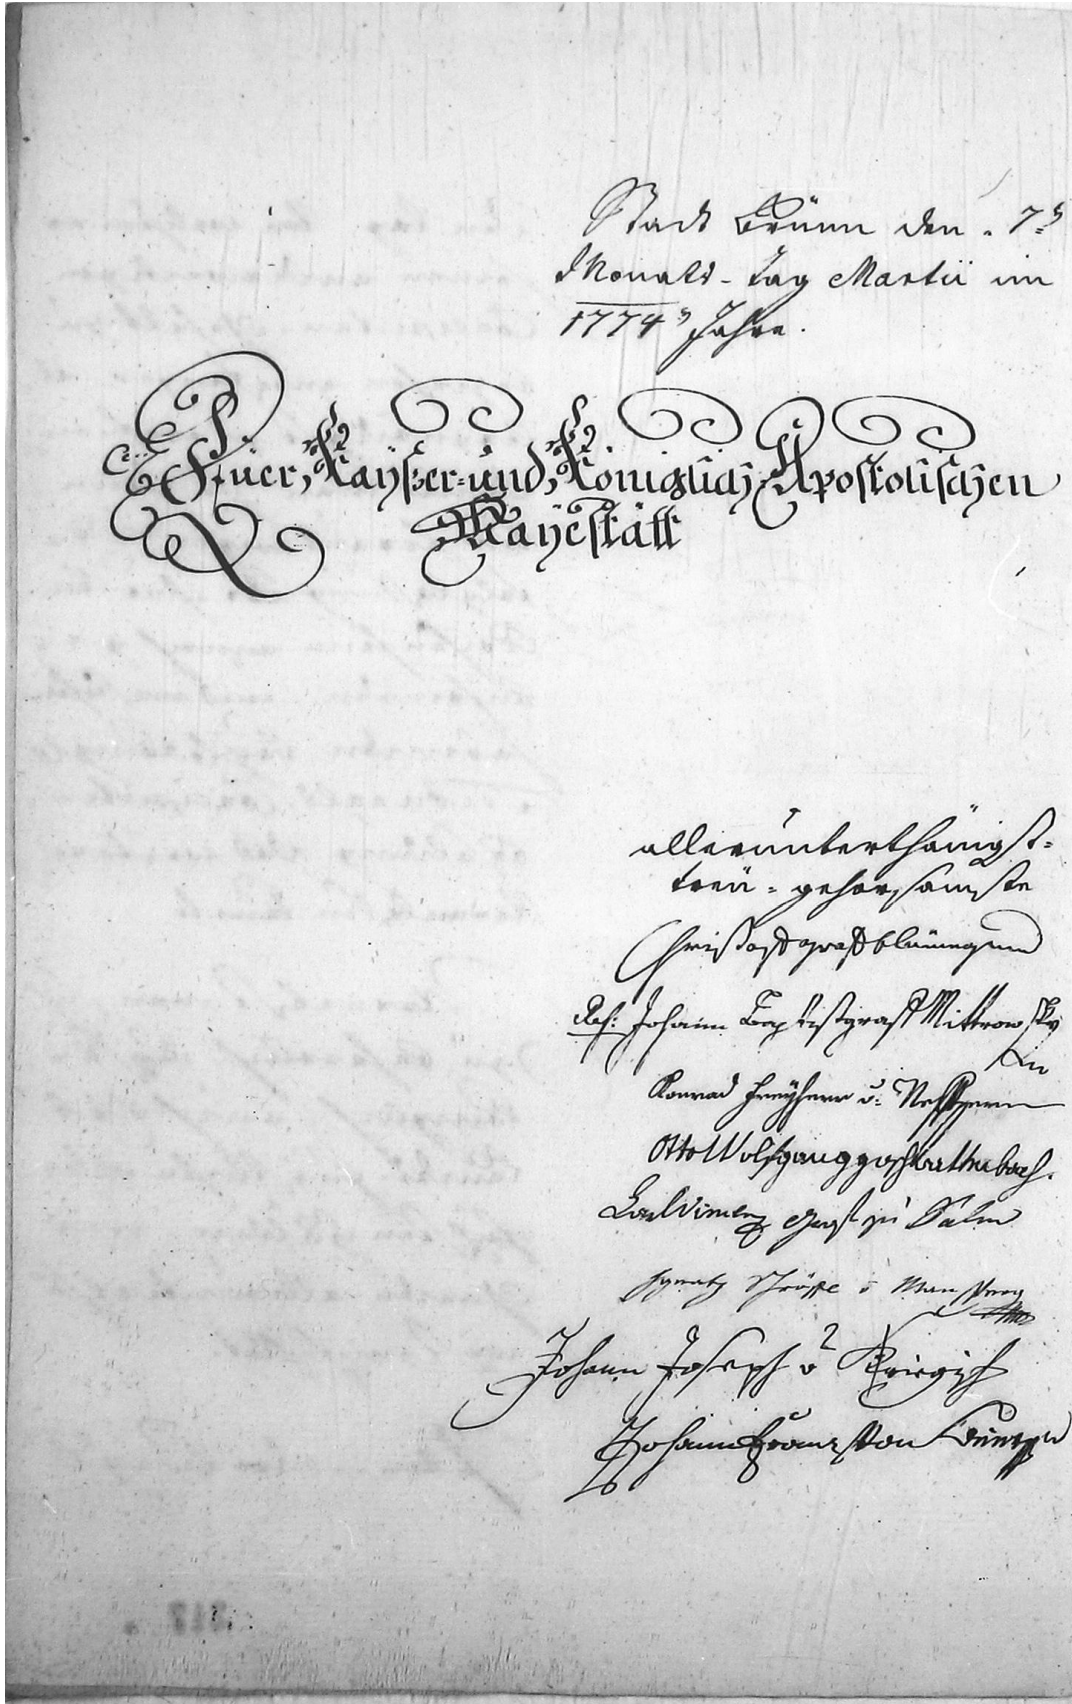 Stadt Brünn den 7.t
Monats-tag Martii im
1774.t Jahre.
Euer, Kayßer- und, Königlich, Apostolischen
Mayestätt
allerunterthänigst-
treü-gehorsamste
Christoph graff blümegen
Ref: Johann Baptist graff Mittrowsky
Konrad freyherr v:
Otto Wolfgang g schrattenbach.
graf zu Salm
Ignatz v
Johann Joseph v
Johann Franz von